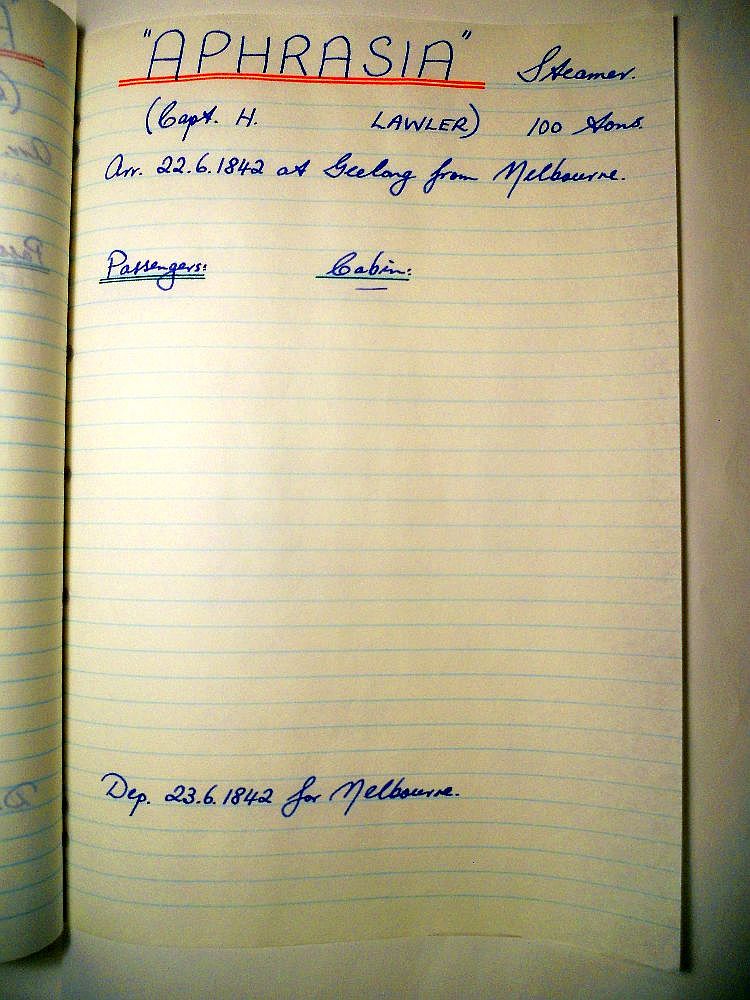 "APHRASIA" Steamer.
(Capt. H. LAWLER) 100 tons.
Arr. 22.6.1842 at Geelong from Melbourne.
Passengers: Cabin:
Dep. 23.6.1842 for Melbourne.